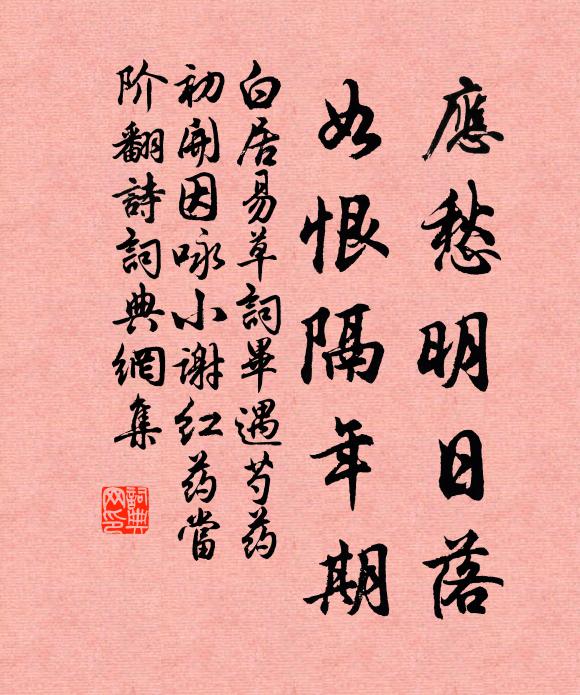 應愁明日落
如恨隔年期
白居易草詞畢遇芍药
初開因咏小謝红药當
阶翻詩詞典網集
詞典网印